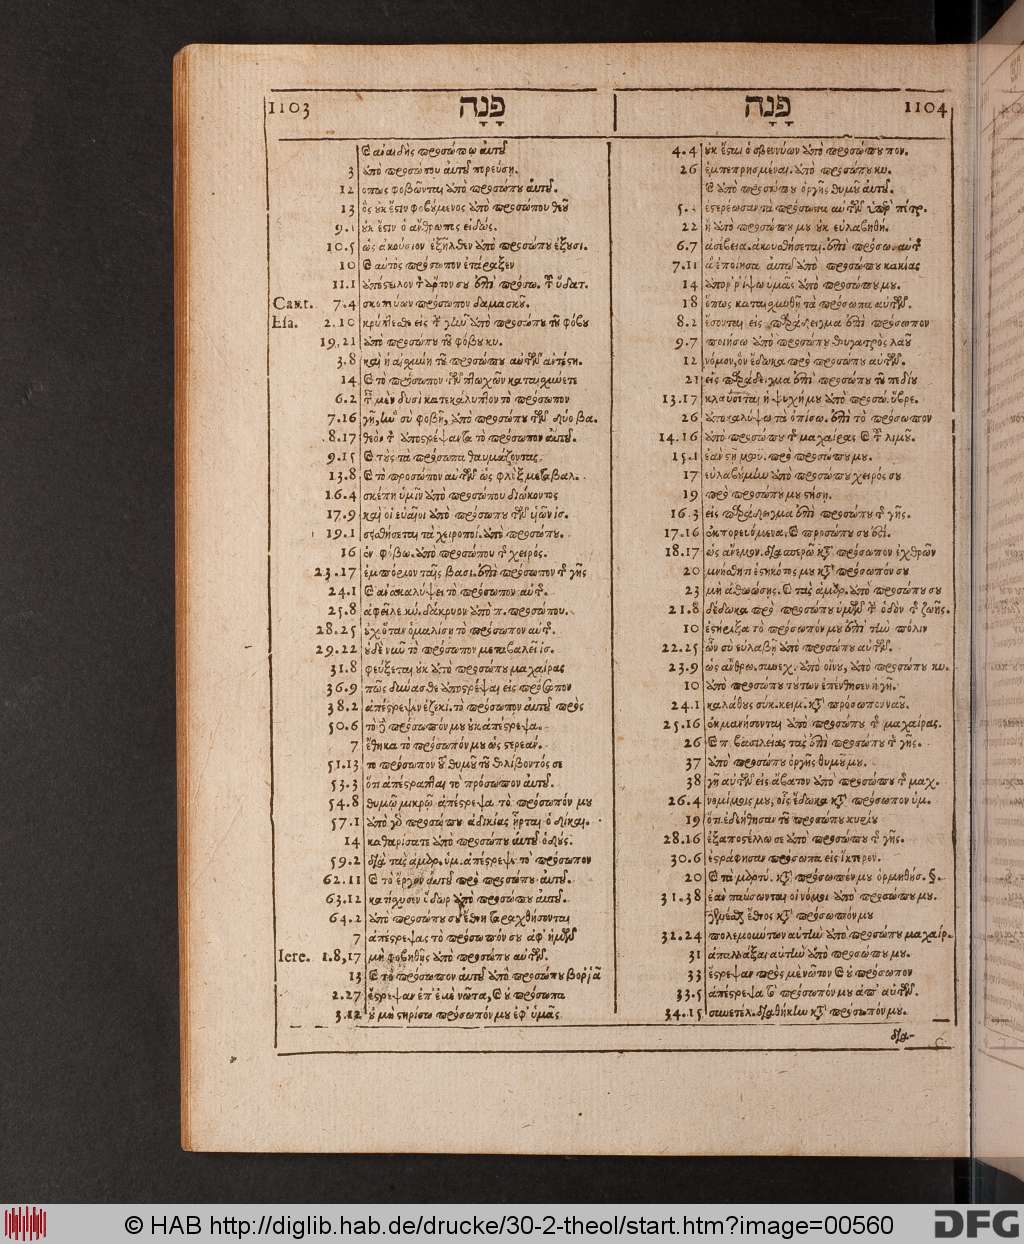 1103 פָּנָה
καὶ ἀναιδὴς προσώπῳ αὐτοῦ
3 ἀπὸ προσώπου αὐτοῦ πορεύσῃ.
12 ὅπως φοβῶνται ἀπὸ προσώπου αὐτοῦ.
13 ὃς οὐκ ἔστιν φοβούμενος ἀπὸ προσώπου θεοῦ
9.1 οὐκ ἔστιν ὁ ἄνθρωπος εἰδώς.
10.5 ὡς ἀκούσιον ἐξῆλθεν ἀπὸ προσώπου ἐξουσι.
10 καὶ αὐτὸς πρόσωπον ἐτάραξεν
11.1 ἀπόστειλον τὸν ἄρτον σου ἐπὶ πρόσω. τοῦ ὕδατ.
Cant. 7.4 σκοπεύων πρόσωπον δαμασκοῦ.
Esa. 2.10 κρύπτεσθε εἰς τὴν γῆν ἀπὸ προσώπου τοῦ φόβου
19,21 ἀπὸ προσώπου τοῦ φόβου κυ.
3.8 καὶ ἡ αἰσχύνη τοῦ προσώπου αὐτῶν ἀντέστη.
14 καὶ τὸ πρόσωπον τῶν πτωχῶν καταισχύνετε
6.2 ταῖς μὲν δυσὶ κατεκάλυπτον τὸ πρόσωπον
7.16 γῆ, ἣν σὺ φοβῇ, ἀπὸ προσώπου τῶν δύο βα.
8.17 θεὸν τὸν ἀποστρέψαντα τὸ πρόσωπον αὐτοῦ.
9.15 καὶ τοὺς τὰ πρόσωπα θαυμάζοντας.
13.8 καὶ τὸ πρόσωπον αὐτῶν ὡς φλὸξ μεταβαλ.
16.4 σκέπη ὑμῖν ἀπὸ προσώπου διώκοντος
17.9 καὶ οἱ εὐαῖοι ἀπὸ προσώπου τῶν υἱῶν ἰσ.
19.1 σεισθήσεται τὰ χειροποί. ἀπὸ προσώπου.
16 ἐν φόβῳ. ἀπὸ προσώπου τῆς χειρός.
23.17 ἐμπόριον ταῖς βασι. ἐπὶ πρόσωπον τῆς γῆς
24.1 καὶ ἀνακαλύψει τὸ πρόσωπον αὐτῆς.
25.8 ἀφεῖλε κύ. δάκρυον ἀπὸ π. προσώπου.
28.25 οὐχ ὅταν ὁμαλίσῃ τὸ πρόσωπον αὐτῆς.
29.22 οὐδὲ νῦν τὸ πρόσωπον μεταβαλεῖ ἰσ.
31.8 φεύξεται οὐκ ἀπὸ προσώπου μαχαίρας
36.9 πῶς δύνασθε ἀποστρέψαι εἰς πρόσωπον
38.2 ἀπέστρεψεν ἐζεκί. τὸ πρόσωπον αὐτοῦ πρὸς
50.6 τὸ δὲ πρόσωπόν μου οὐκ ἀπέστρεψα.
7 ἔθηκα τὸ πρόσωπόν μου ὡς στερεάν.
51.13 τὸ πρόσωπον τοῦ θυμοῦ τοῦ θλίβοντός σε
53.3 ὅτι ἀπέστραπται τὸ πρόσωπον αὐτοῦ.
54.8 θυμῷ μικρῷ ἀπέστρεψα τὸ πρόσωπόν μου
57.1 ἀπὸ γὰρ προσώπου ἀδικίας ἦρται ὁ δίκαι.
14 καθαρίσατε ἀπὸ προσώπου αὐτοῦ ὁδούς.
59.2 διὰ τὰς ἁμαρ. ὑμ. ἀπέστρεψε τὸ πρόσωπον
62.11 καὶ τὸ ἔργον αὐτοῦ πρὸ προσώπου αὐτοῦ.
63.12 κατίσχυσεν ὕδωρ ἀπὸ προσώπου αὐτοῦ.
64.2 ἀπὸ προσώπου σου ἔθνη ταραχθήσονται
7 ἀπέστρεψας τὸ πρόσωπόν σου ἀφ' ἡμῶν
Iere. 1.8,17 μὴ φοβηθῇς ἀπὸ προσώπου αὐτῶν.
13 καὶ τὸ πρόσωπον αὐτοῦ ἀπὸ προσώπου βορρᾶ
2.27 ἔστρεψαν ἐπ' ἐμὲ νῶτα, καὶ οὐ πρόσωπα
3.12 οὐ μὴ στηρίσω πρόσωπόν μου ἐφ' ὑμᾶς.
פָּנָה 1104
4.4 οὐκ ἔσται ὁ σβεννύων ἀπὸ προσώπου πον.
26 ἐμπεπρησμέναι. ἀπὸ προσώπου κυ.
καὶ ἀπὸ προσώπου ὀργῆς θυμοῦ αὐτοῦ.
5. ἐστερέωσαν τὰ πρόσωπα αὐτῶν ὑπὲρ πέτρ.
22 ἢ ἀπὸ προσώπου μου οὐκ εὐλαβηθή.
6.7 ἀσέβεια. ἀκουσθήσεται. ἐπὶ πρόσω. αὐτῆς
7.11 ἃ ἐποίησα αὐτῷ ἀπὸ προσώπου κακίας
14 ἀπορρίψω ὑμᾶς ἀπὸ προσώπου μου.
18 ὅπως καταισχυνθῇ τὰ πρόσωπα αὐτῶν.
8.2 ἔσονται εἰς παράδειγμα ἐπὶ πρόσωπον
9.7 ποιήσω ἀπὸ προσώπου θυγατρὸς λαοῦ
12 νόμον, ὃν ἔδωκα πρὸ προσώπου αὐτῶν.
21 εἰς παράδειγμα ἐπὶ προσώπου τοῦ πεδίου
13.17 κλαύσεται ἡ ψυχή μου ἀπὸ προσώ. ὕβρε.
26 ἀποκαλύψω τὰ ὀπίσω. ἐπὶ τὸ πρόσωπον
14.16 ἀπὸ προσώπου τῆς μαχαίρας καὶ τοῦ λιμοῦ.
15.1 ἐὰν στῇ μωυ. πρὸ προσώπου μου.
17 εὐλαβούμην ἀπὸ προσώπου χειρός σου
19 πρὸ προσώπου μου στήσῃ.
16.3 εἰς παράδειγμα ἐπὶ προσώπου τῆς γῆς.
17.16 ἐκπορευόμενα, καὶ προσώπου σου ἐστί.
18.17 ὡς ἄνεμον. διασπερῶ κατὰ πρόσωπον ἐχθρῶν
20 μνήσθητι ἑστηκότος μου κατὰ πρόσωπόν σου
23 μὴ ἀθωώσῃς. καὶ τὰς ἁμαρ. ἀπὸ προσώπου σου
21.8 δέδωκα πρὸ προσώπου ὑμῶν τὴν ὁδὸν τῆς ζωῆς.
10 ἐστήριξα τὸ πρόσωπόν μου ἐπὶ τὴν πόλιν
22.25 ὧν σὺ εὐλαβῇ ἀπὸ προσώπου αὐτῶν.
23.9 ὡς ἄνθρω. συνεχ. ἀπὸ οἴνου, ἀπὸ προσώπου κυ.
10 ἀπὸ προσώπου τούτων ἐπένθησεν ἡ γῆ.
24.1 καλάθους σύκ. κειμ. κατὰ πρόσωπον ναοῦ.
25.16 ἐκμανήσονται ἀπὸ προσώπου τῆς μαχαίρας.
26 καὶ π. βασιλείας τὰς ἐπὶ προσώπου τῆς γῆς.
37 ἀπὸ προσώπου ὀργῆς θυμοῦ μου.
38 γῆ αὐτῶν εἰς ἄβατον ἀπὸ προσώπου τῆς μαχ.
26.4 νομίμοις μου, οἷς ἔδωκα κατὰ πρόσωπον ὑμ.
19 ὅτι ἐδεήθησαν τοῦ προσώπου κυρίου
28.16 ἐξαποστέλλω σε ἀπὸ προσώπου τῆς γῆς.
30.6 ἐστράφησαν πρόσωπα εἰς ἴκτερον.
20 καὶ τὰ μαρτύ. κατὰ πρόσωπόν μου ὀρθωθήσ. §.
31.38 ἐὰν παύσωνται οἱ νόμοι ἀπὸ προσώπου μου.
γενέσθαι ἔθνος κατὰ πρόσωπόν μου
32.24 πολεμούντων αὐτὴν ἀπὸ προσώπου μαχαίρ.
31 ἀπαλλάξαι αὐτὴν ἀπὸ προσώπου μου.
33 ἔστρεψαν πρός με νῶτον καὶ οὐ πρόσωπον
33.5 ἀπέστρεψα τὸ πρόσωπόν μου ἀπ' αὐτῶν.
34.15 συνετέλ. διαθήκην κατὰ πρόσωπόν μου.
δια-
© HAB http://diglib.hab.de/drucke/30-2-theol/start.htm?image=00560
DFG